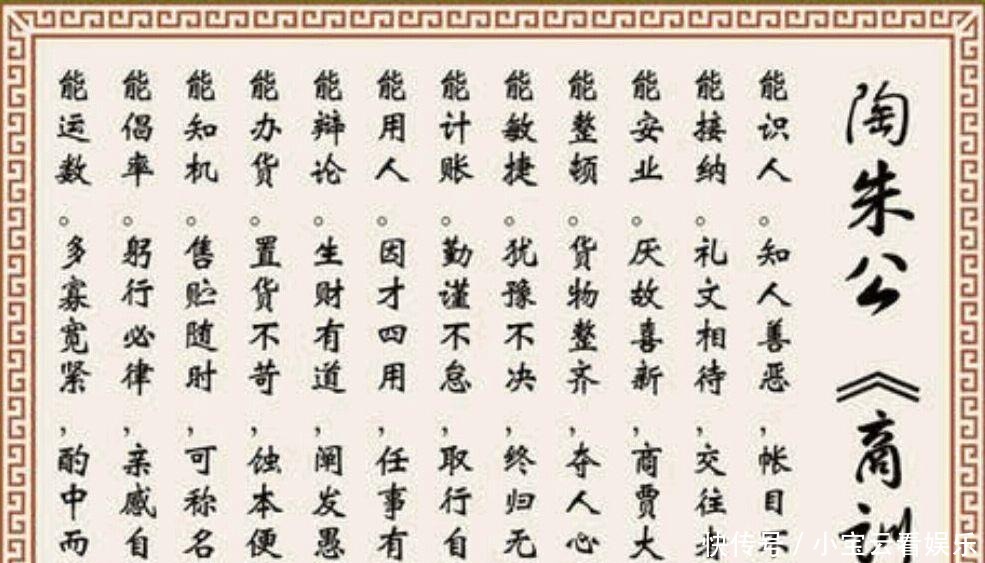 陶朱公《商训
能识人。知人善恶，帐目
能接纳。礼文相待，交往
能安业。厌故喜新，商贾大
能整顿。货物整齐，夺人心
能敏捷。犹豫不决，终归无
能计账。勤谨不怠，取行自
能用人。因才四用，任事有
能辩论。生财有道，阐发愚
能办货。置货不苛，蚀本便
能知机。售贮随时，可称名
能倡率。躬行必律，亲感自
能运数。多寡宽紧，酌中而
快传号 / 小宝云看娱乐